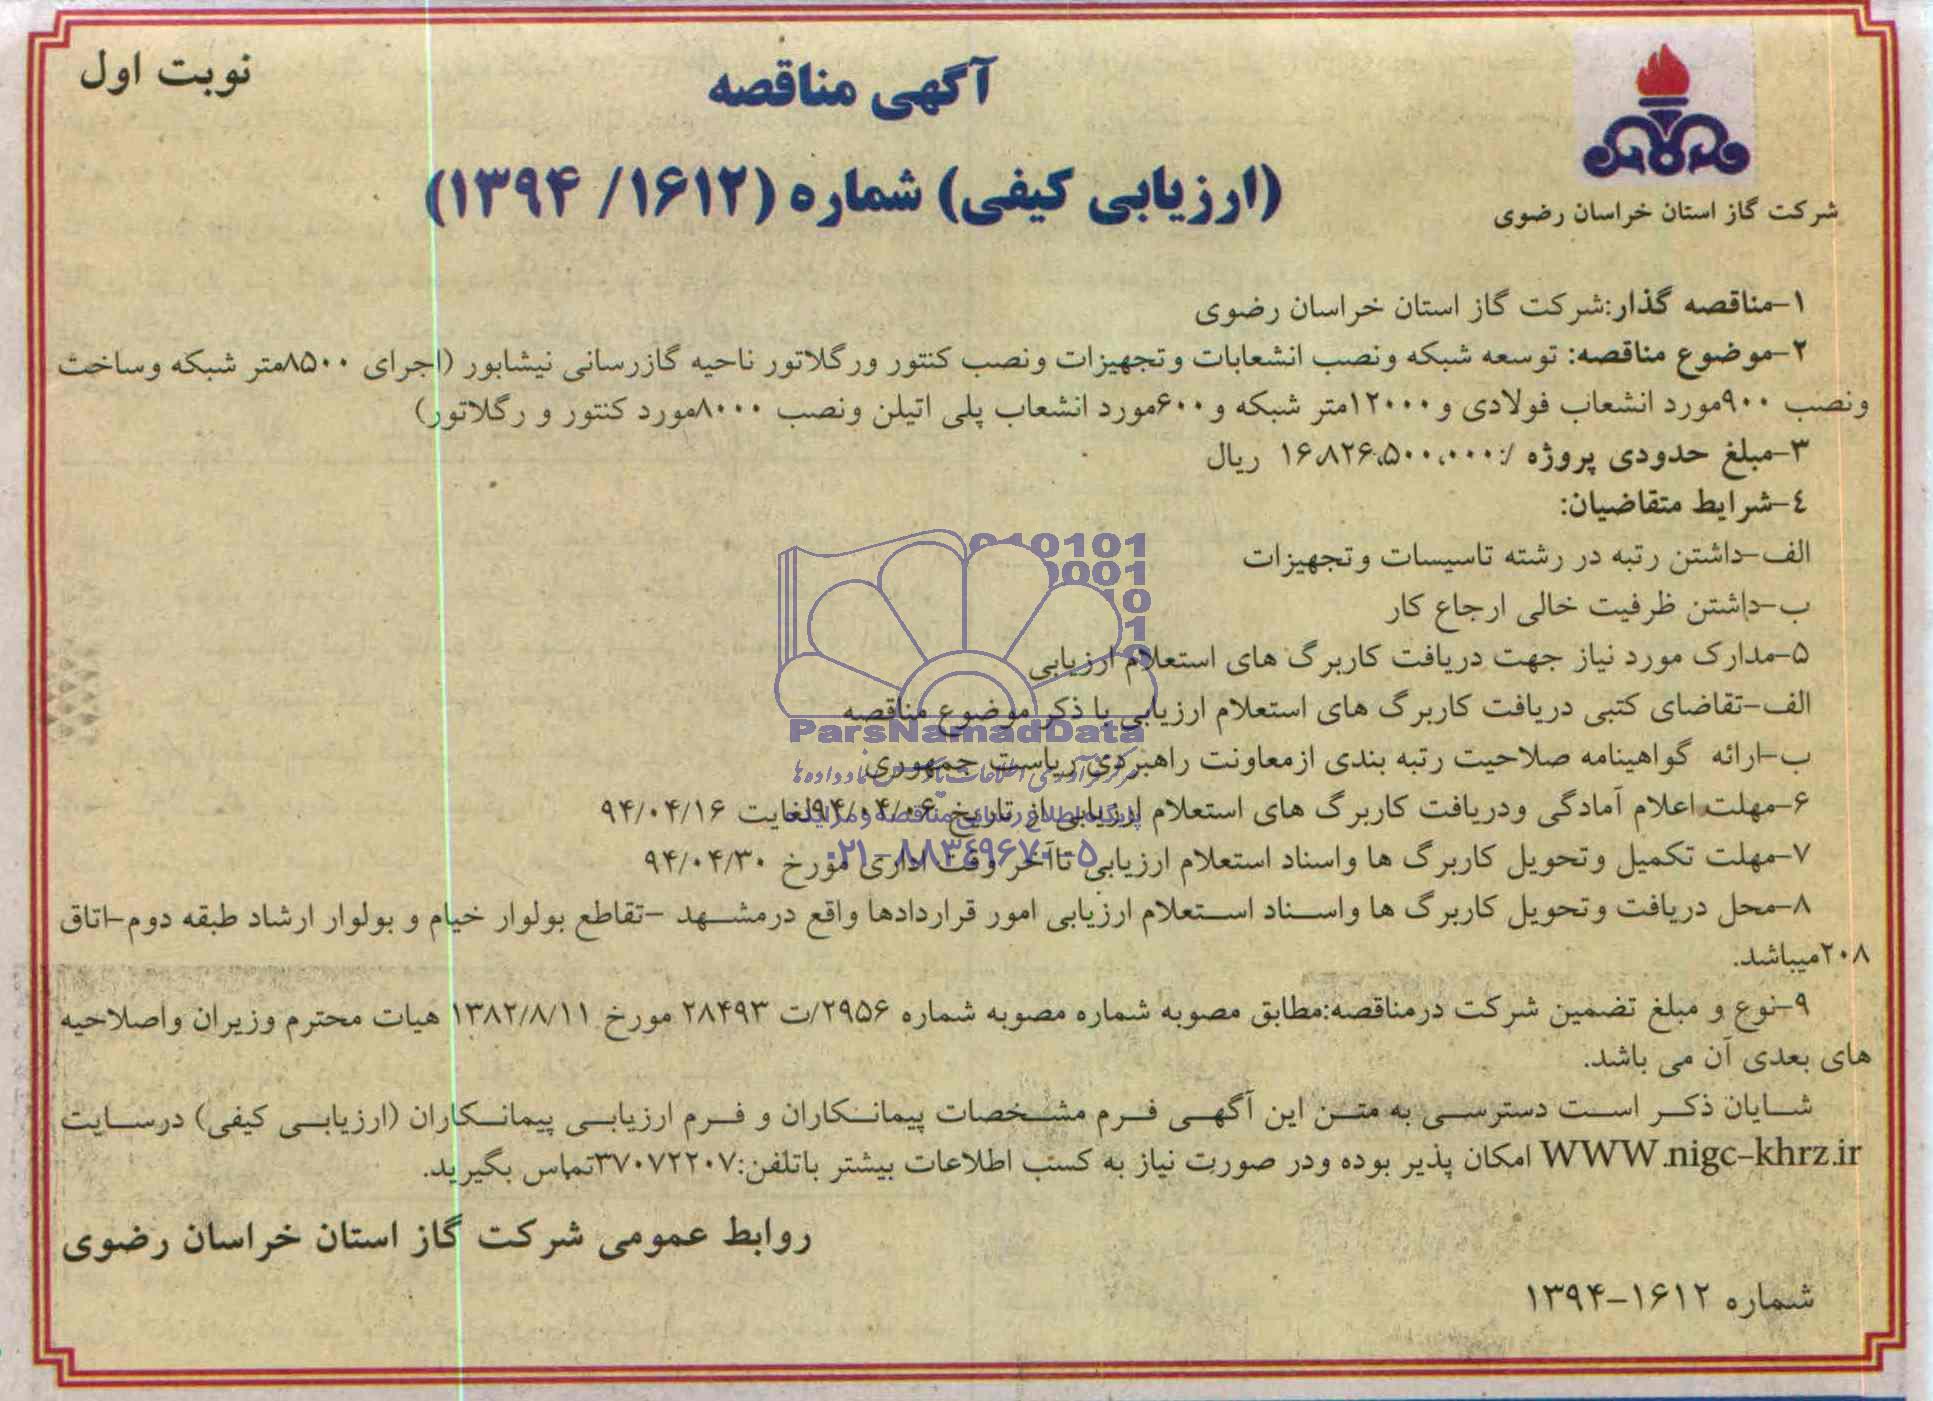 نوبت اول
آگهی مناقصه
(ارزیابی کیفی) شماره (۱۶۱۲/ ۱۳۹۴)
شرکت گاز استان خراسان رضوی
۱-مناقصه گذار:شرکت گاز استان خراسان رضوی
۲-موضوع مناقصه: توسعه شبکه ونصب انشعابات وتجهیزات ونصب کنتور ورگلاتور ناحیه گازرسانی نیشابور (اجرای ۸۵۰۰متر شبکه وساخت
ونصب ۹۰۰مورد انشعاب فولادی و۱۲۰۰۰متر شبکه و۶۰۰مورد انشعاب پلی اتیلن ونصب ۸۰۰۰مورد کنتور و رگلاتور)
۳-مبلغ حدودی پروژه /:۱۶،۸۲۶،۵۰۰،۰۰۰ ریال
٤-شرایط متقاضیان:
الف-داشتن رتبه در رشته تاسیسات وتجهیزات
ب-داشتن ظرفیت خالی ارجاع کار
۵-مدارک مورد نیاز جهت دریافت کاربرگ های استعلام ارزیابی
الف-تقاضای کتبی دریافت کاربرگ های استعلام ارزیابی با ذکر موضوع مناقصه
ب-ارائه گواهینامه صلاحیت رتبه بندی ازمعاونت راهبردی ریاست جمهوری
۶-مهلت اعلام آمادگی ودریافت کاربرگ های استعلام ارزیابی از تاریخ ۹۴/۰۴/۰۶لغایت ۹۴/۰۴/۱۶
۷-مهلت تکمیل وتحویل کاربرگ ها واسناد استعلام ارزیابی تاآخر وقت اداری مورخ ۹۴/۰۴/۳۰
۸-محل دریافت وتحویل کاربرگ ها واسناد استعلام ارزیابی امور قراردادها واقع درمشهد -تقاطع بولوار خیام و بولوار ارشاد طبقه دوم-اتاق
۲۰۸میباشد.
۹-نوع و مبلغ تضمین شرکت درمناقصه:مطابق مصوبه شماره مصوبه شماره ۲۹۵۶/ت ۲۸۴۹۳ مورخ ۱۳۸۲/۸/۱۱ هیات محترم وزیران واصلاحیه
های بعدی آن می باشد.
شایان ذکر است دسترسی به متن این آگهی فرم مشخصات پیمانکاران و فرم ارزیابی پیمانکاران (ارزیابی کیفی) درسایت
WWW.nigc-khrz.ir امکان پذیر بوده ودر صورت نیاز به کسب اطلاعات بیشتر باتلفن:۳۷۰۷۲۲۰۷تماس بگیرید.
روابط عمومی شرکت گاز استان خراسان رضوی
شماره ۱۶۱۲-۱۳۹۴
ParsNamadData
پایگاه اطلاع رسانی مناقصه و مزایده
۰۲۱-۸۸۳۴۹۶۷۰-۵